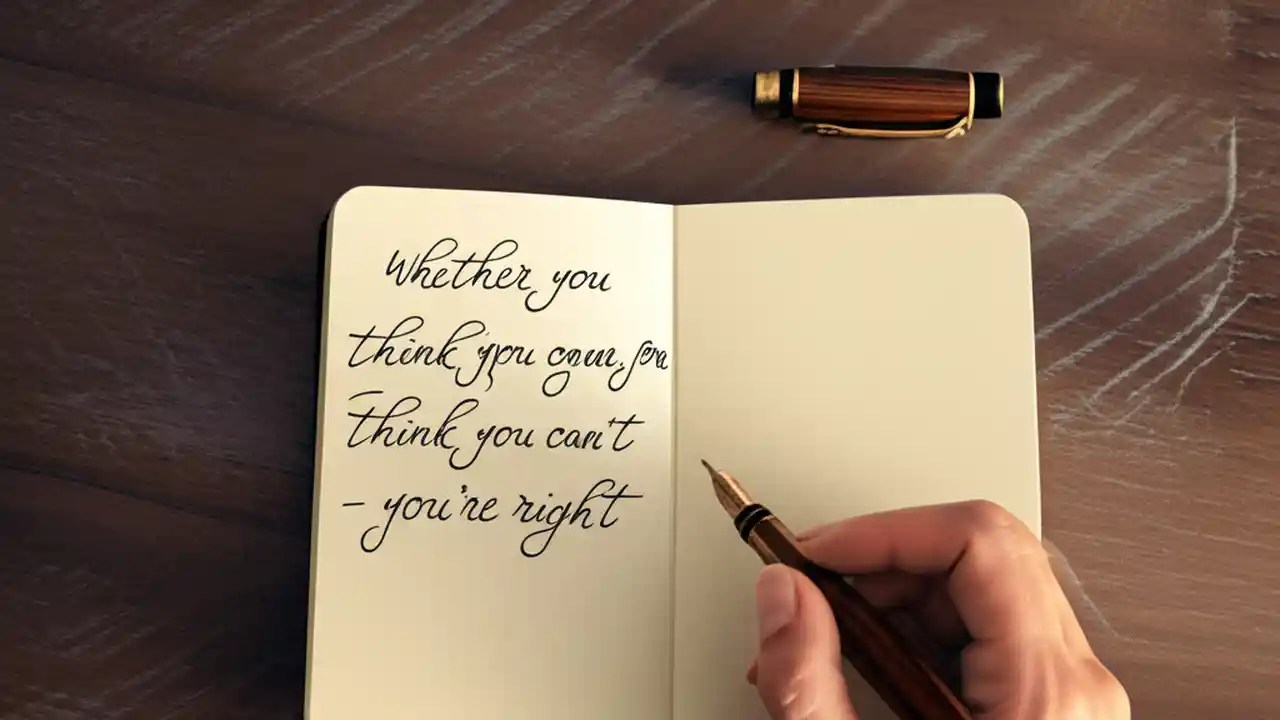 Whether you
think you
think you can't
– you're right